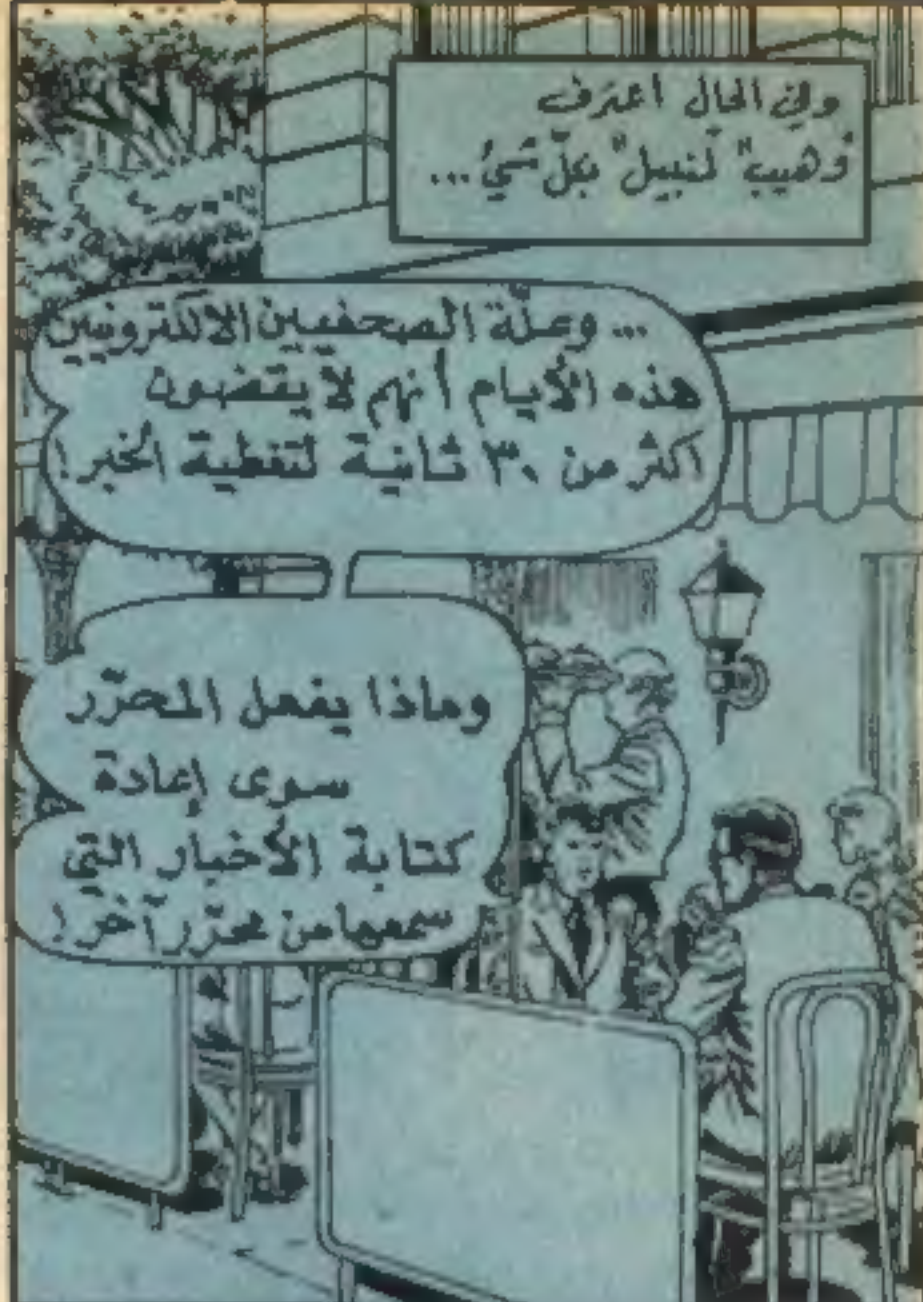 وفي الحال اعترف
"وهيب" لنبيل" بكلّ شيء...
... وعلّة الصحفيين الالكترونيين
هذه الأيام أنهم لا يقضون
اكثر من ٣٠ ثانية لتغطية الخبر!
وماذا يفعل المحرّر
سوى إعادة
كتابة الأخبار التي
سمعها من محرّر آخر!